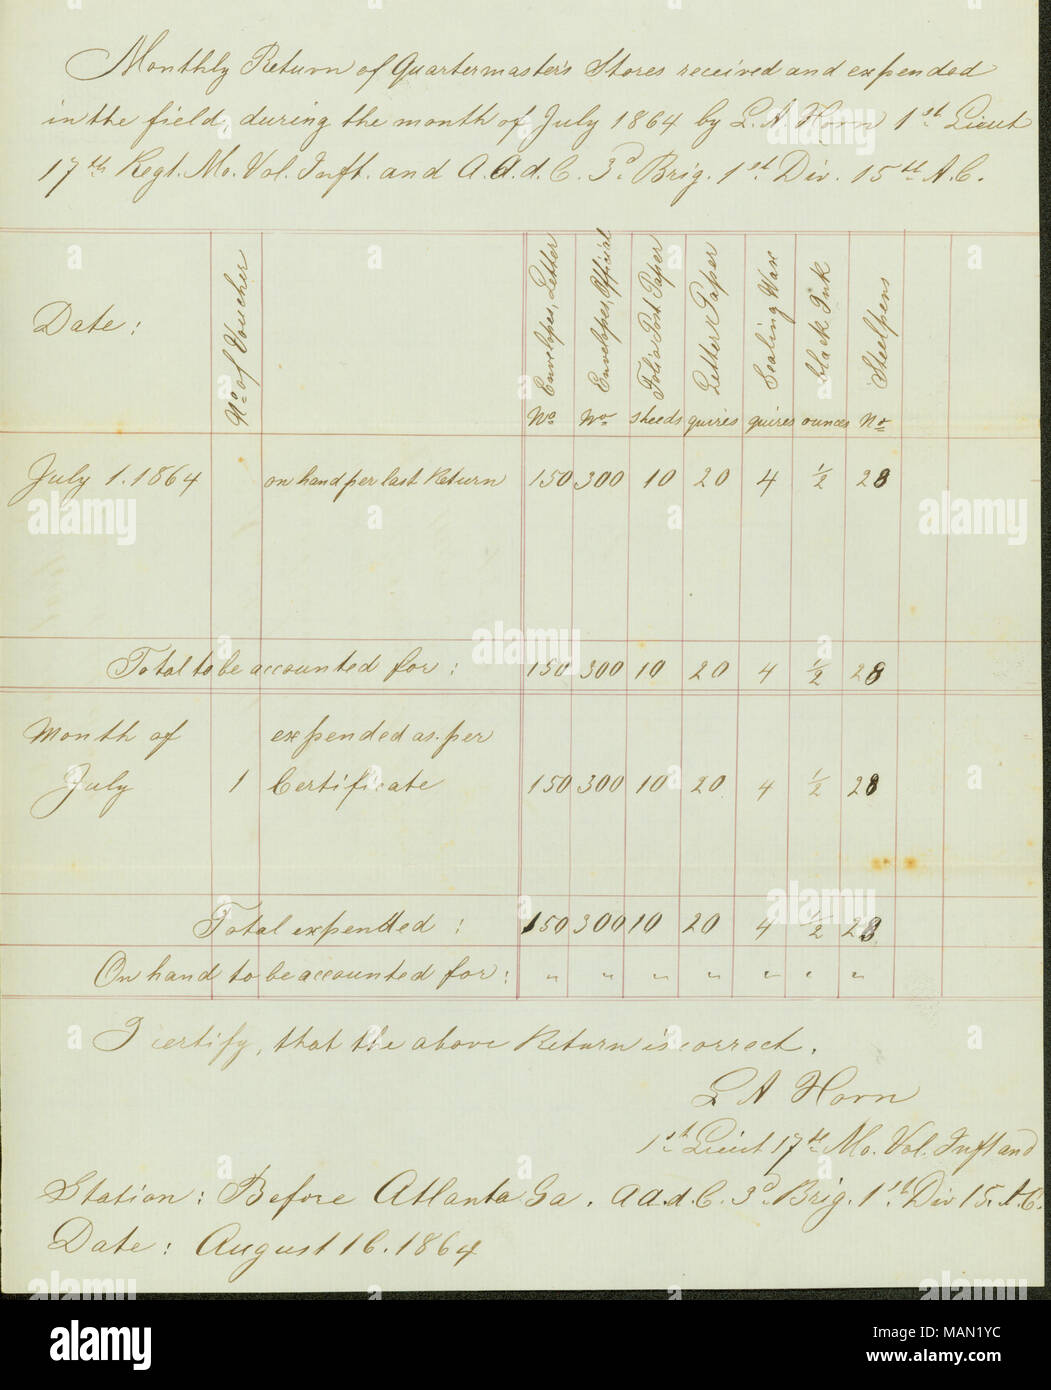 Monthly Return of Quartermaster's Stores received and expended
in the field, during the month of July 1864 by L. A. Horn 1st Lieut
17th Regt. Mo. Vol. Inft. and A.A.d.C. 3d Brig. 1st Div. 15th A.C.
Date: No of Voucher Envelopes, Letter Envelopes, Official Folio Post Paper Letter Paper Sealing Wax black Ink Steelpens
No No sheeds quires quires ounces No
July 1. 1864 on hand per last Return 150 300 10 20 4 1/2 28
Total to be accounted for: 150 300 10 20 4 1/2 28
Month of expended as per
July 1 Certificate 150 300 10 20 4 1/2 28
Total expended: 150 300 10 20 4 1/2 28
On hand to be accounted for: " " " " " " "
I certify, that the above Return is correct.
L A Horn
1st Lieut 17th Mo. Vol. Inft and
Station: Before Atlanta Ga. A A.d.C. 3d Brig. 1st Div 15. A.C.
Date: August 16. 1864
alamy
alamy
alamy
alamy
alamy
alamy
alamy
alamy
alamy
alamy
Image ID: MAN1YC
www.alamy.com